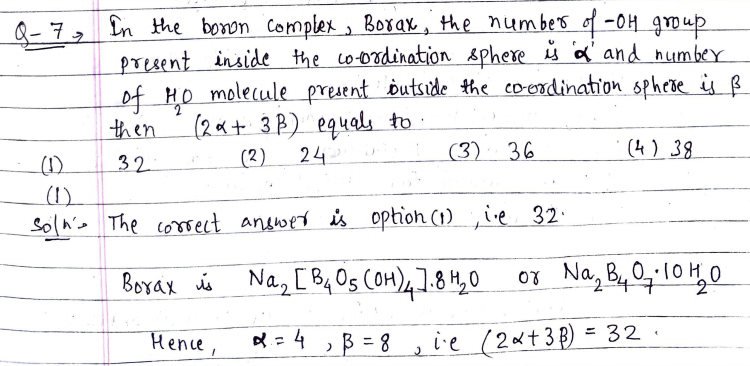 Q-7 → In the boron complex, Borax, the number of -OH group
present inside the co-ordination sphere is 'α' and number
of H₂O molecule present outside the co-ordination sphere is β
then (2α + 3β) equals to.
(1) 32 (2) 24 (3) 36 (4) 38
(1)
Solⁿ:- The correct answer is option (1), i.e 32.
Borax is Na₂[B₄O₅(OH)₄].8H₂O or Na₂B₄O₇.10H₂O
Hence, α = 4, β = 8, i.e (2α+3β) = 32.